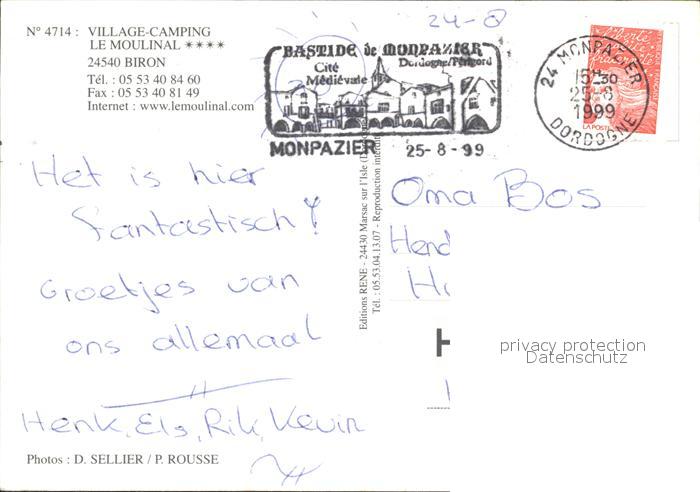 24-8
N° 4714 : VILLAGE-CAMPING
LE MOULINAL ✶✶✶✶
24540 BIRON
Tél. : 05 53 40 84 60
Fax : 05 53 40 81 49
Internet : www.lemoulinal.com
BASTIDE de MONPAZIER
Cité Dordogne/Périgord
Médiévale
MONPAZIER 25-8-99
24 MONPAZIER
15H30
25-8
1999
DORDOGNE
LA POSTE
Het is hier
fantastisch!
Groetjes van
ons allemaal
Henk, Els, Rik, Kevin
Oma Bos
Hend
H
privacy protection
Datenschutz
Editions RENE - 24430 Marsac sur l'Isle
Tél. : 05.53.04.13.07 - Reproduction interdite
Photos : D. SELLIER / P. ROUSSE